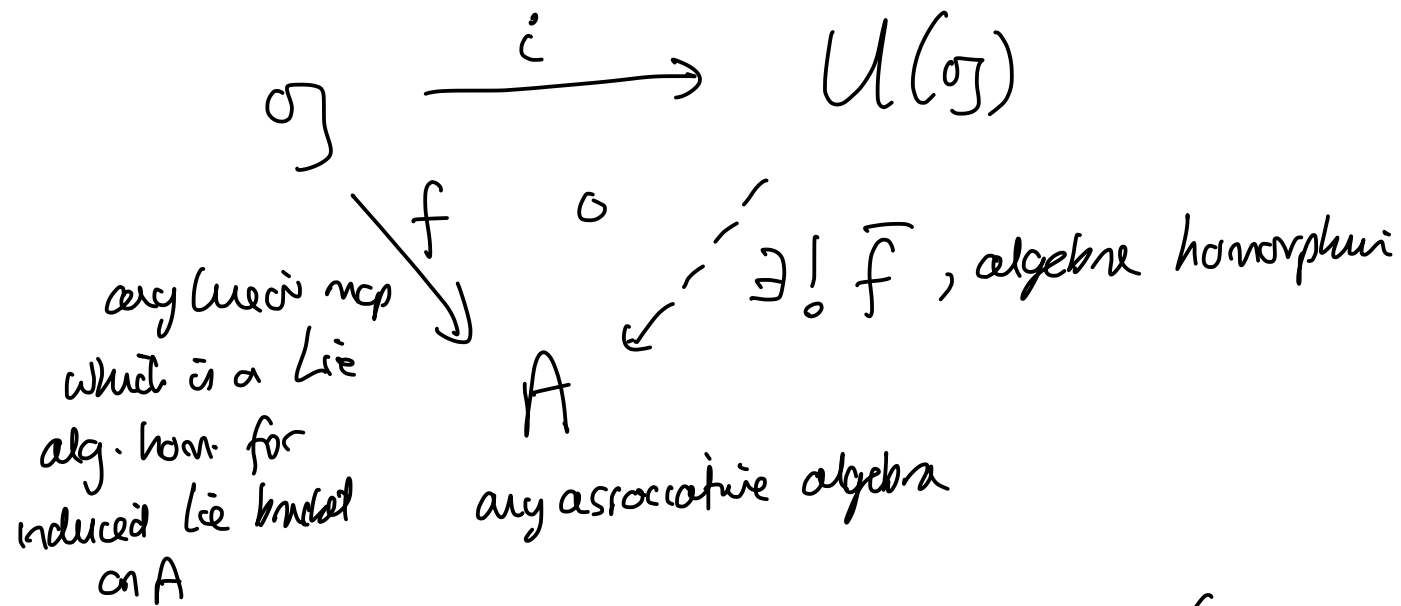 i
𝔤 U(𝔤)
f o ∃! f̄, algebra homorphui
any linear map
which is a Lie
alg. hom. for
induced Lie bracket
on A
A
any associative algebra